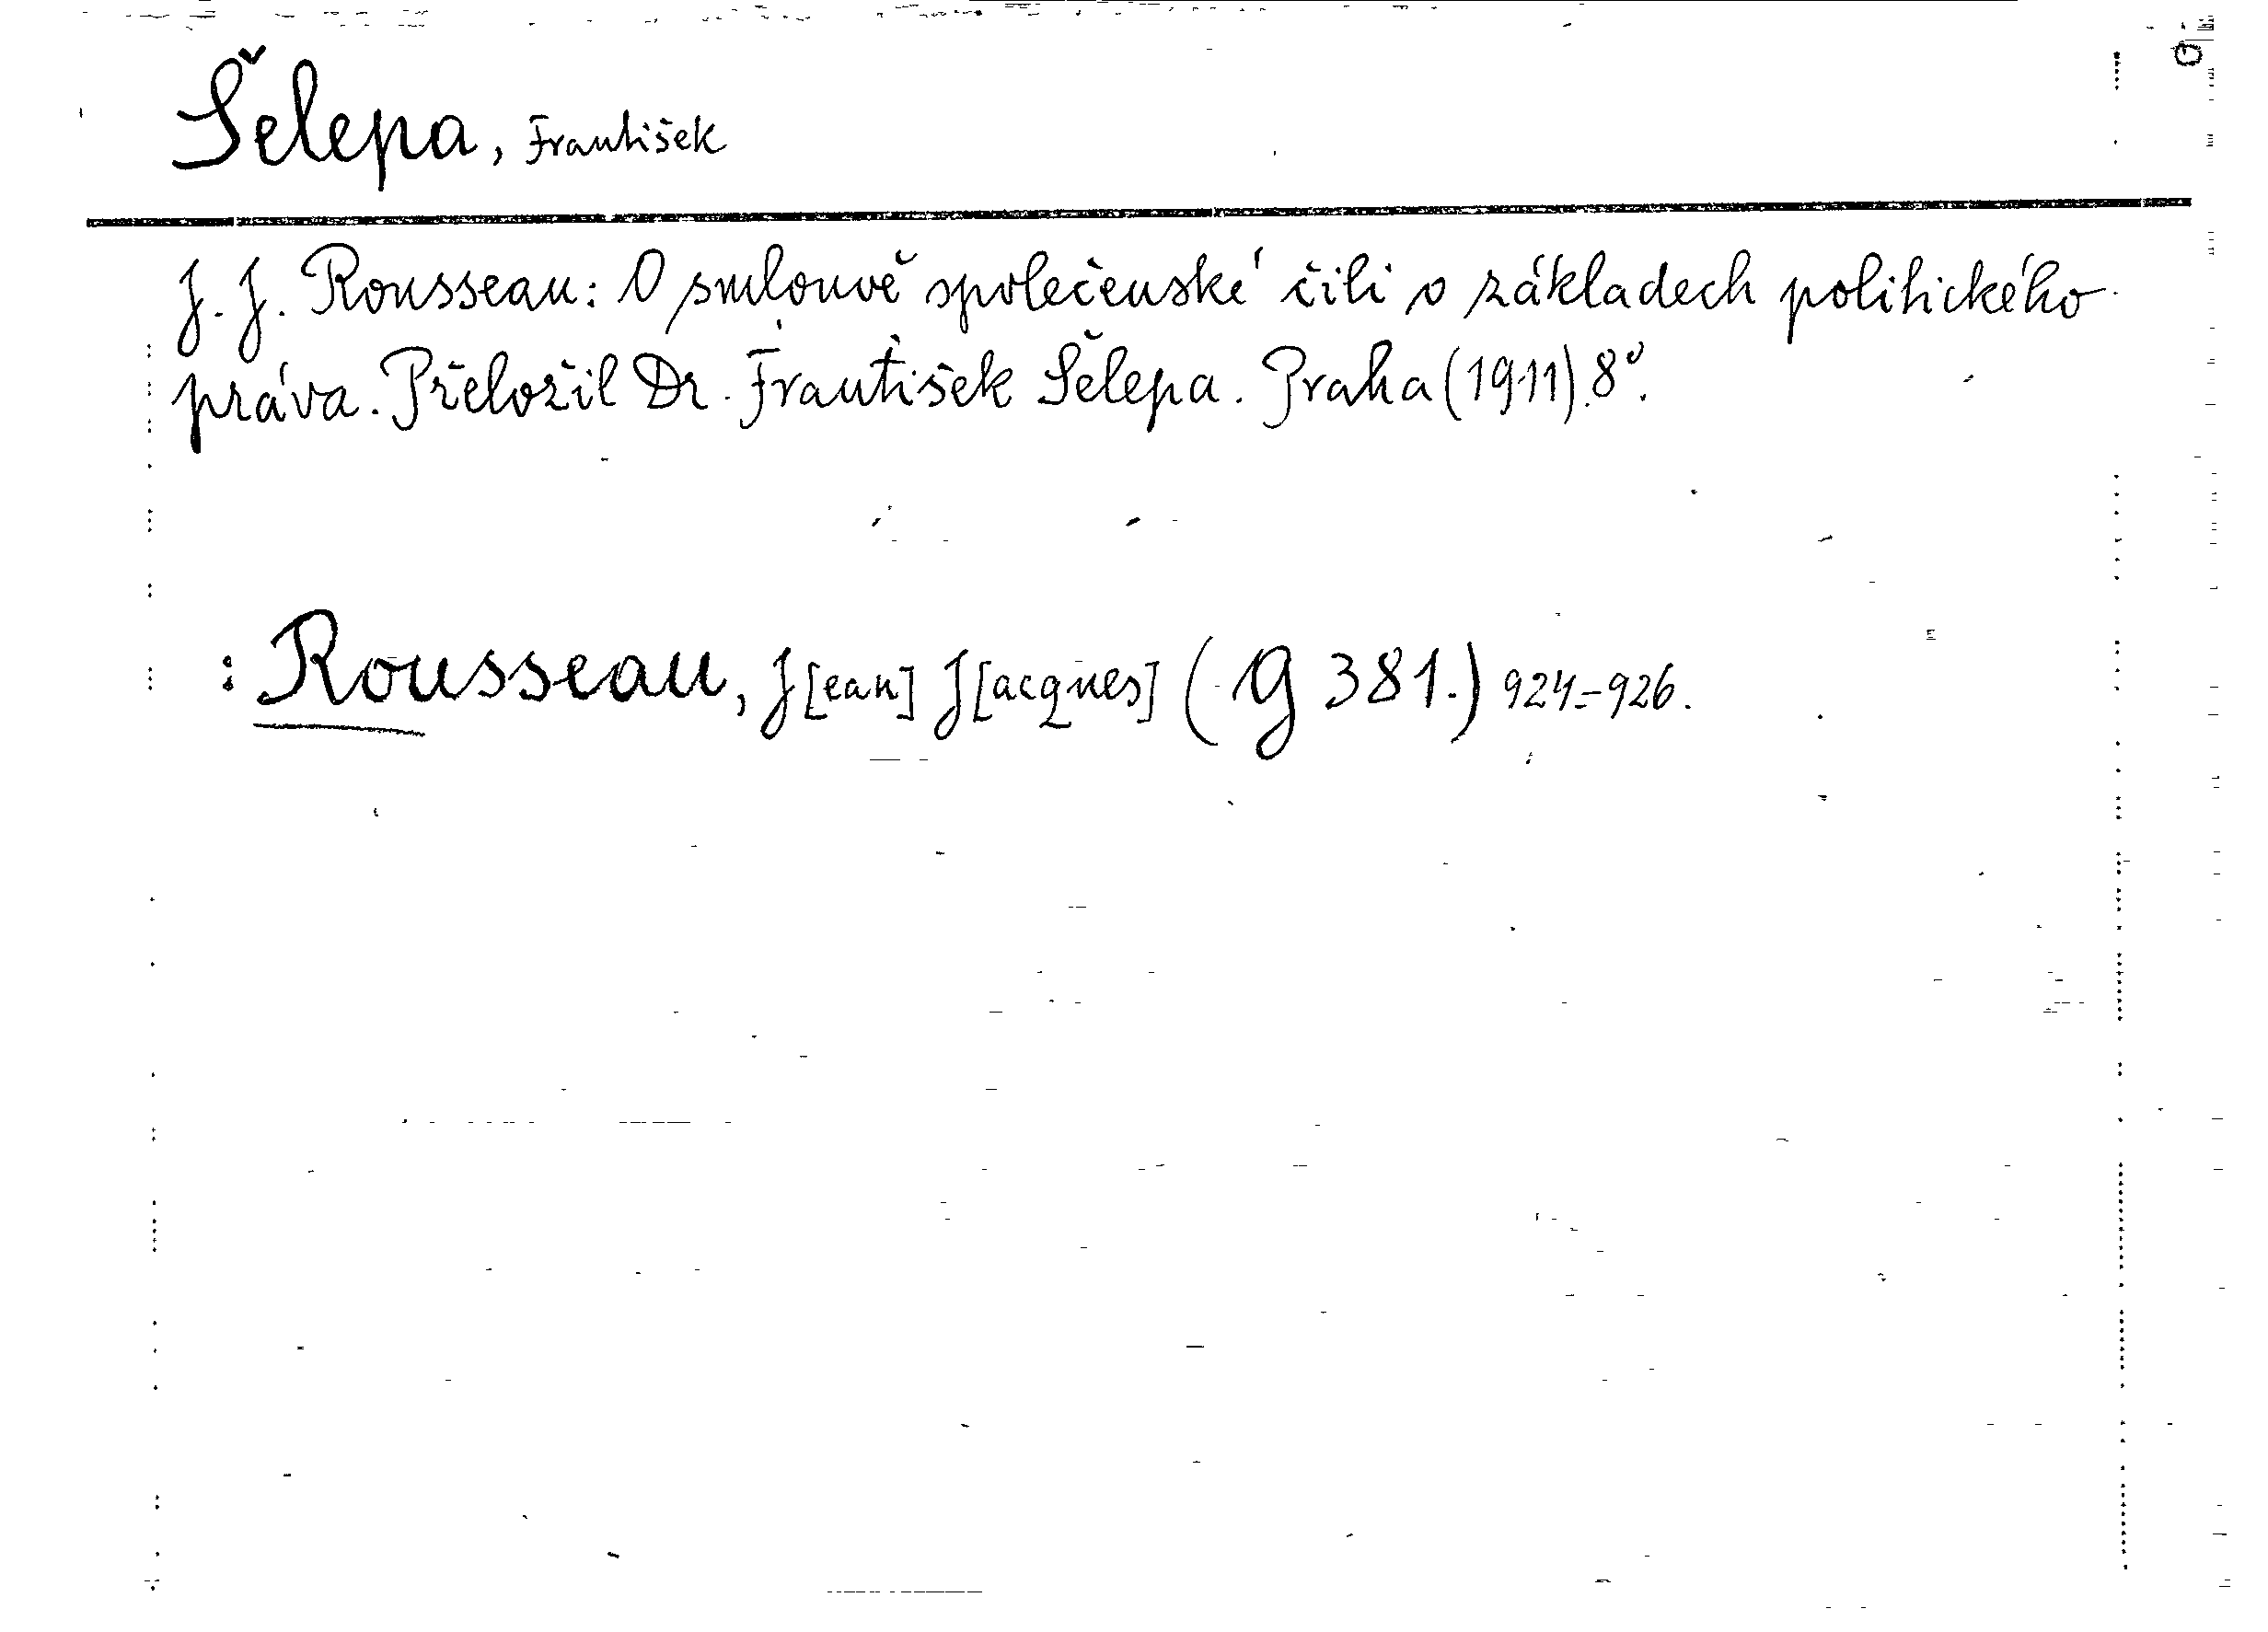 Šelepa, František
J. J. Rousseau: O smlouvě společenské čili o základech politického
práva. Přeložil Dr. František Šelepa. Praha (1911). 8°.
: Rousseau, J[ean] J[acques] (G 381.) 924–926.